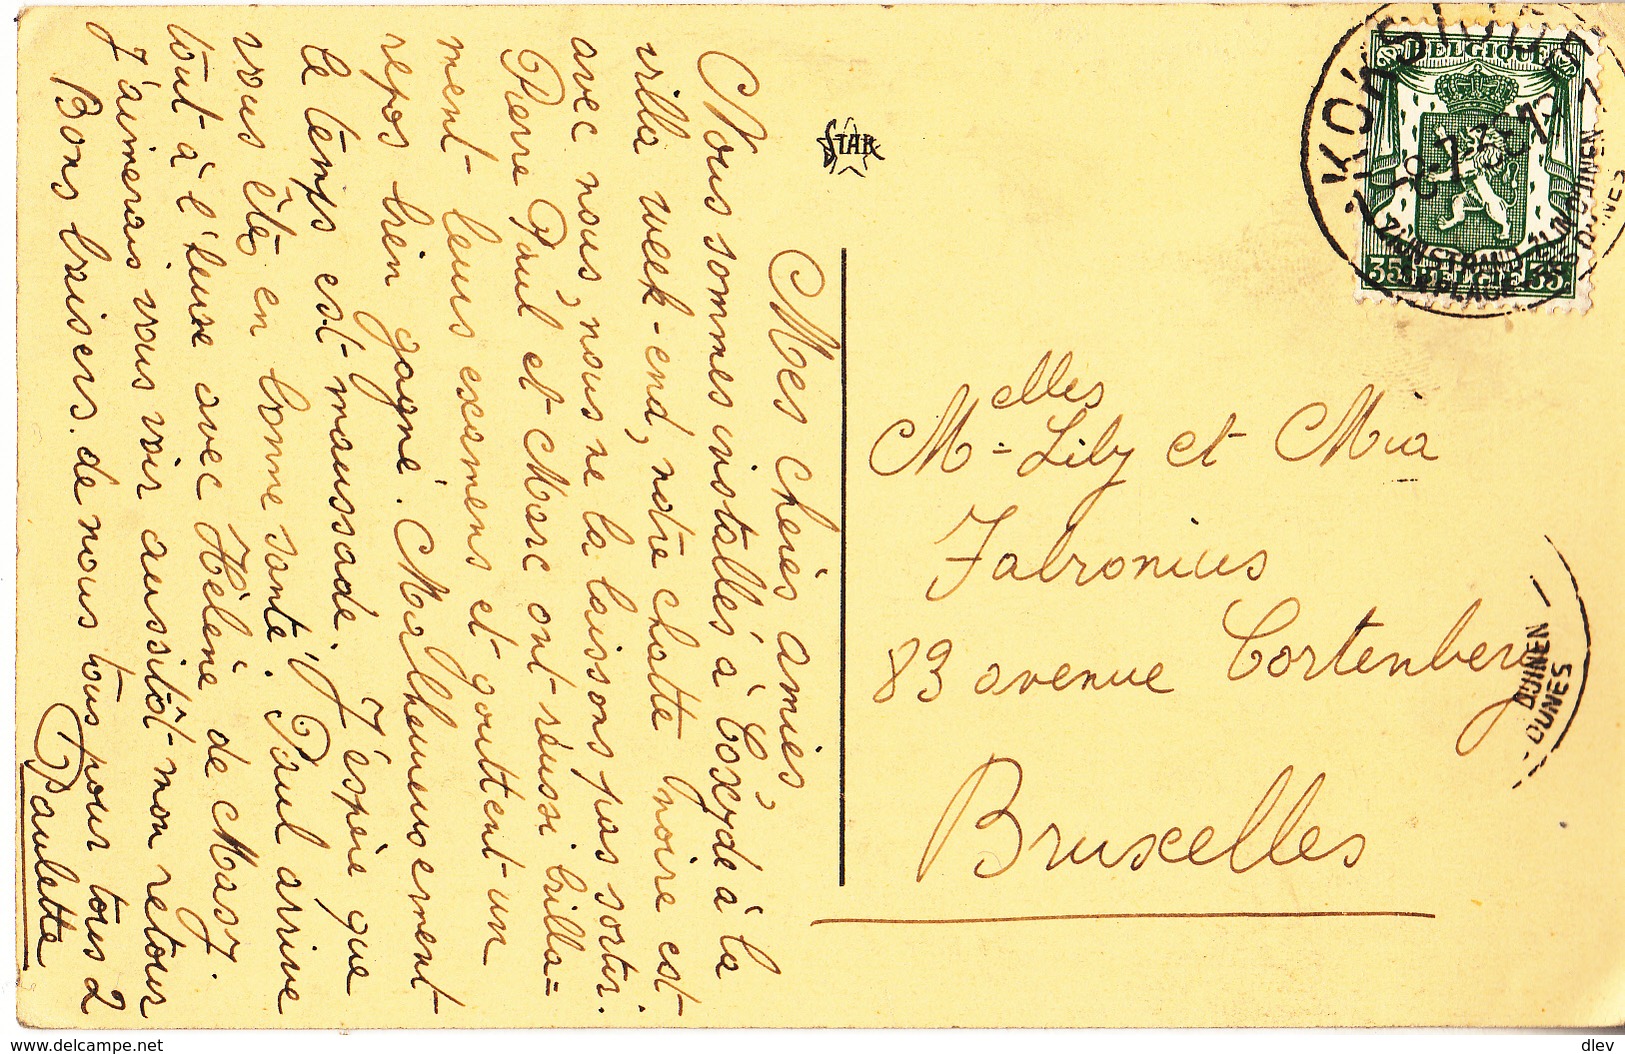 Mes chères amies,
Nous sommes installés à Coxyde à la
villa week-end, notre chatte noire est
avec nous, nous ne la laissons pas sortir.
Pierre Paul et Marc ont réussi brilla=
ment leurs examens et goûttent un
repos bien gagné. Malheureusement
le temps est maussade. J'espère que
vous êtes en bonne santé. Paul arrive
tout à l'heure avec Hélène de Masy.
J'aimerais vous voir aussitôt mon retour
Bons baisers de nous tous pour tous 2
Paulette
STAR
BELGIQUE
35 BELGIE 35
ZIJN STRAND ZIJN DUINEN
SA PLAGE SES DUNES
Melles Lily et Mia
Fabronius
83 avenue Cortenberg
Bruxelles
DUINEN
DUNES
www.delcampe.net
dlev